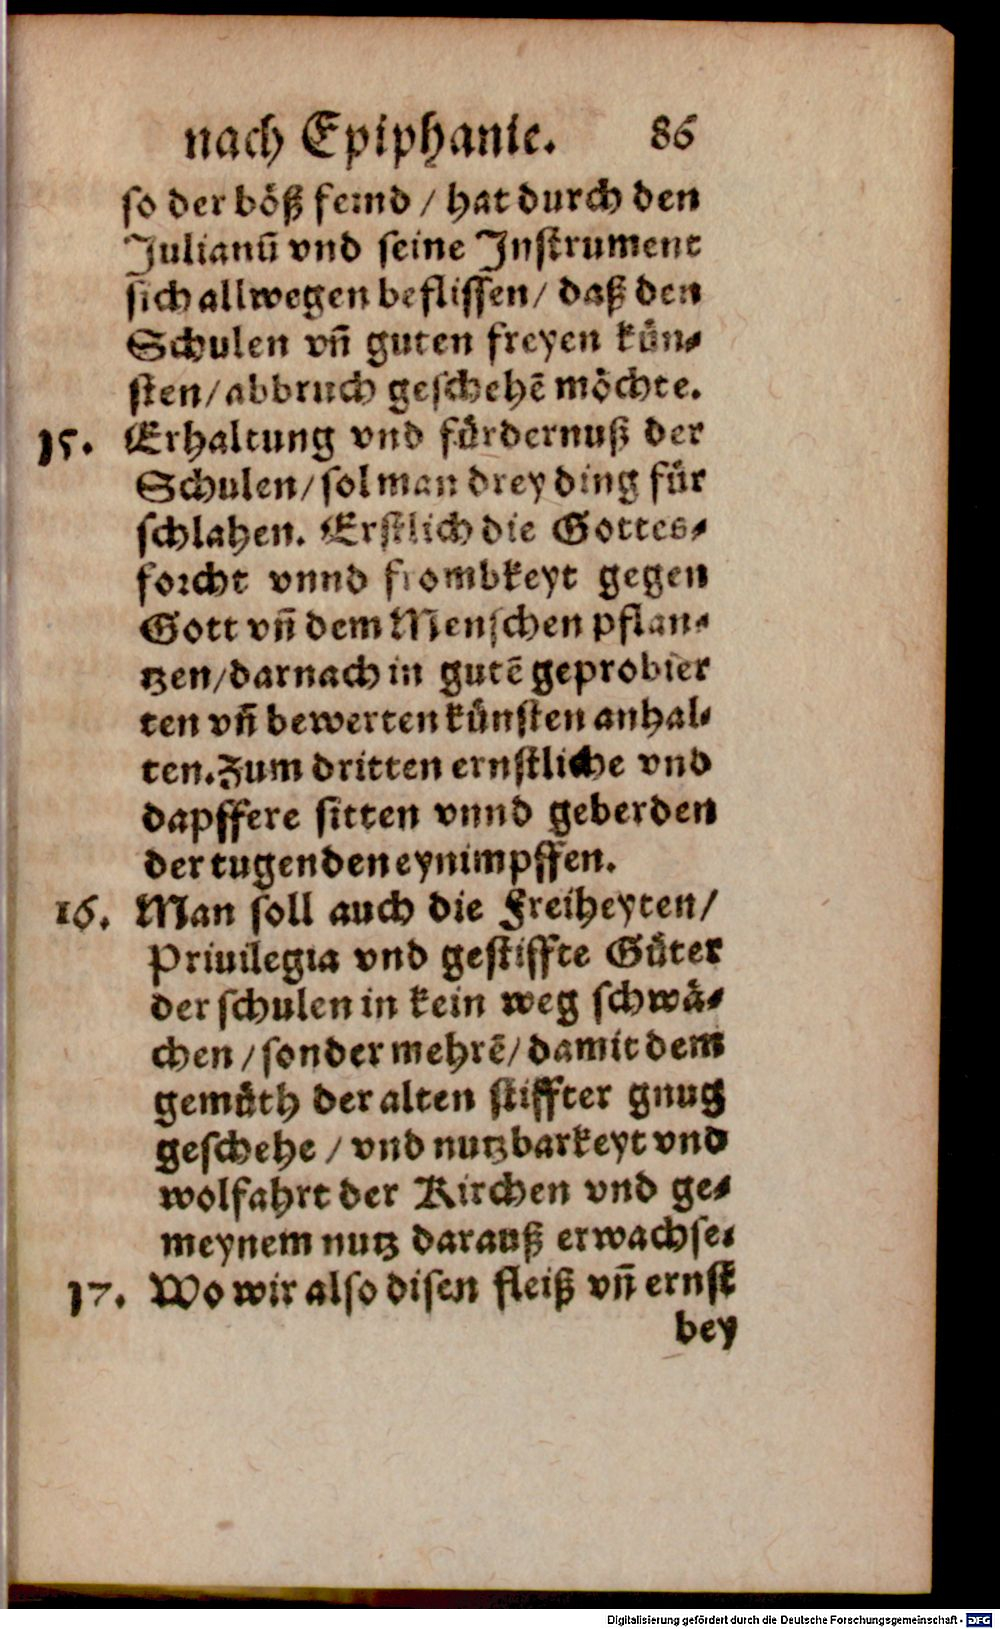 nach Epiphanie. 86
so der böß feind / hat durch den
Julianū vnd seine Instrument
sich allwegen beflissen / daß den
Schulen vñ guten freyen kün⸗
sten / abbruch geschehē möchte.
15. Erhaltung vnd fürdernuß der
Schulen / sol man drey ding für
schlahen. Erstlich die Gottes⸗
forcht vnnd frombkeyt gegen
Gott vñ dem Menschen pflan⸗
tzen / darnach in gutē geprobier
ten vñ bewerten künsten anhal⸗
ten. Zum dritten ernstliche vnd
dapffere sitten vnnd geberden
der tugenden eynimpffen.
16. Man soll auch die Freiheyten /
Priuilegia vnd gestiffte Güter
der schulen in kein weg schwä⸗
chen / sonder mehrē / damit dem
gemüth der alten stiffter gnug
geschehe / vnd nutzbarkeyt vnd
wolfahrt der Kirchen vnd ge⸗
meynem nutz darauß erwachse.
17. Wo wir also disen fleiß vñ ernst
bey
Digitalisierung gefördert durch die Deutsche Forschungsgemeinschaft - DFG